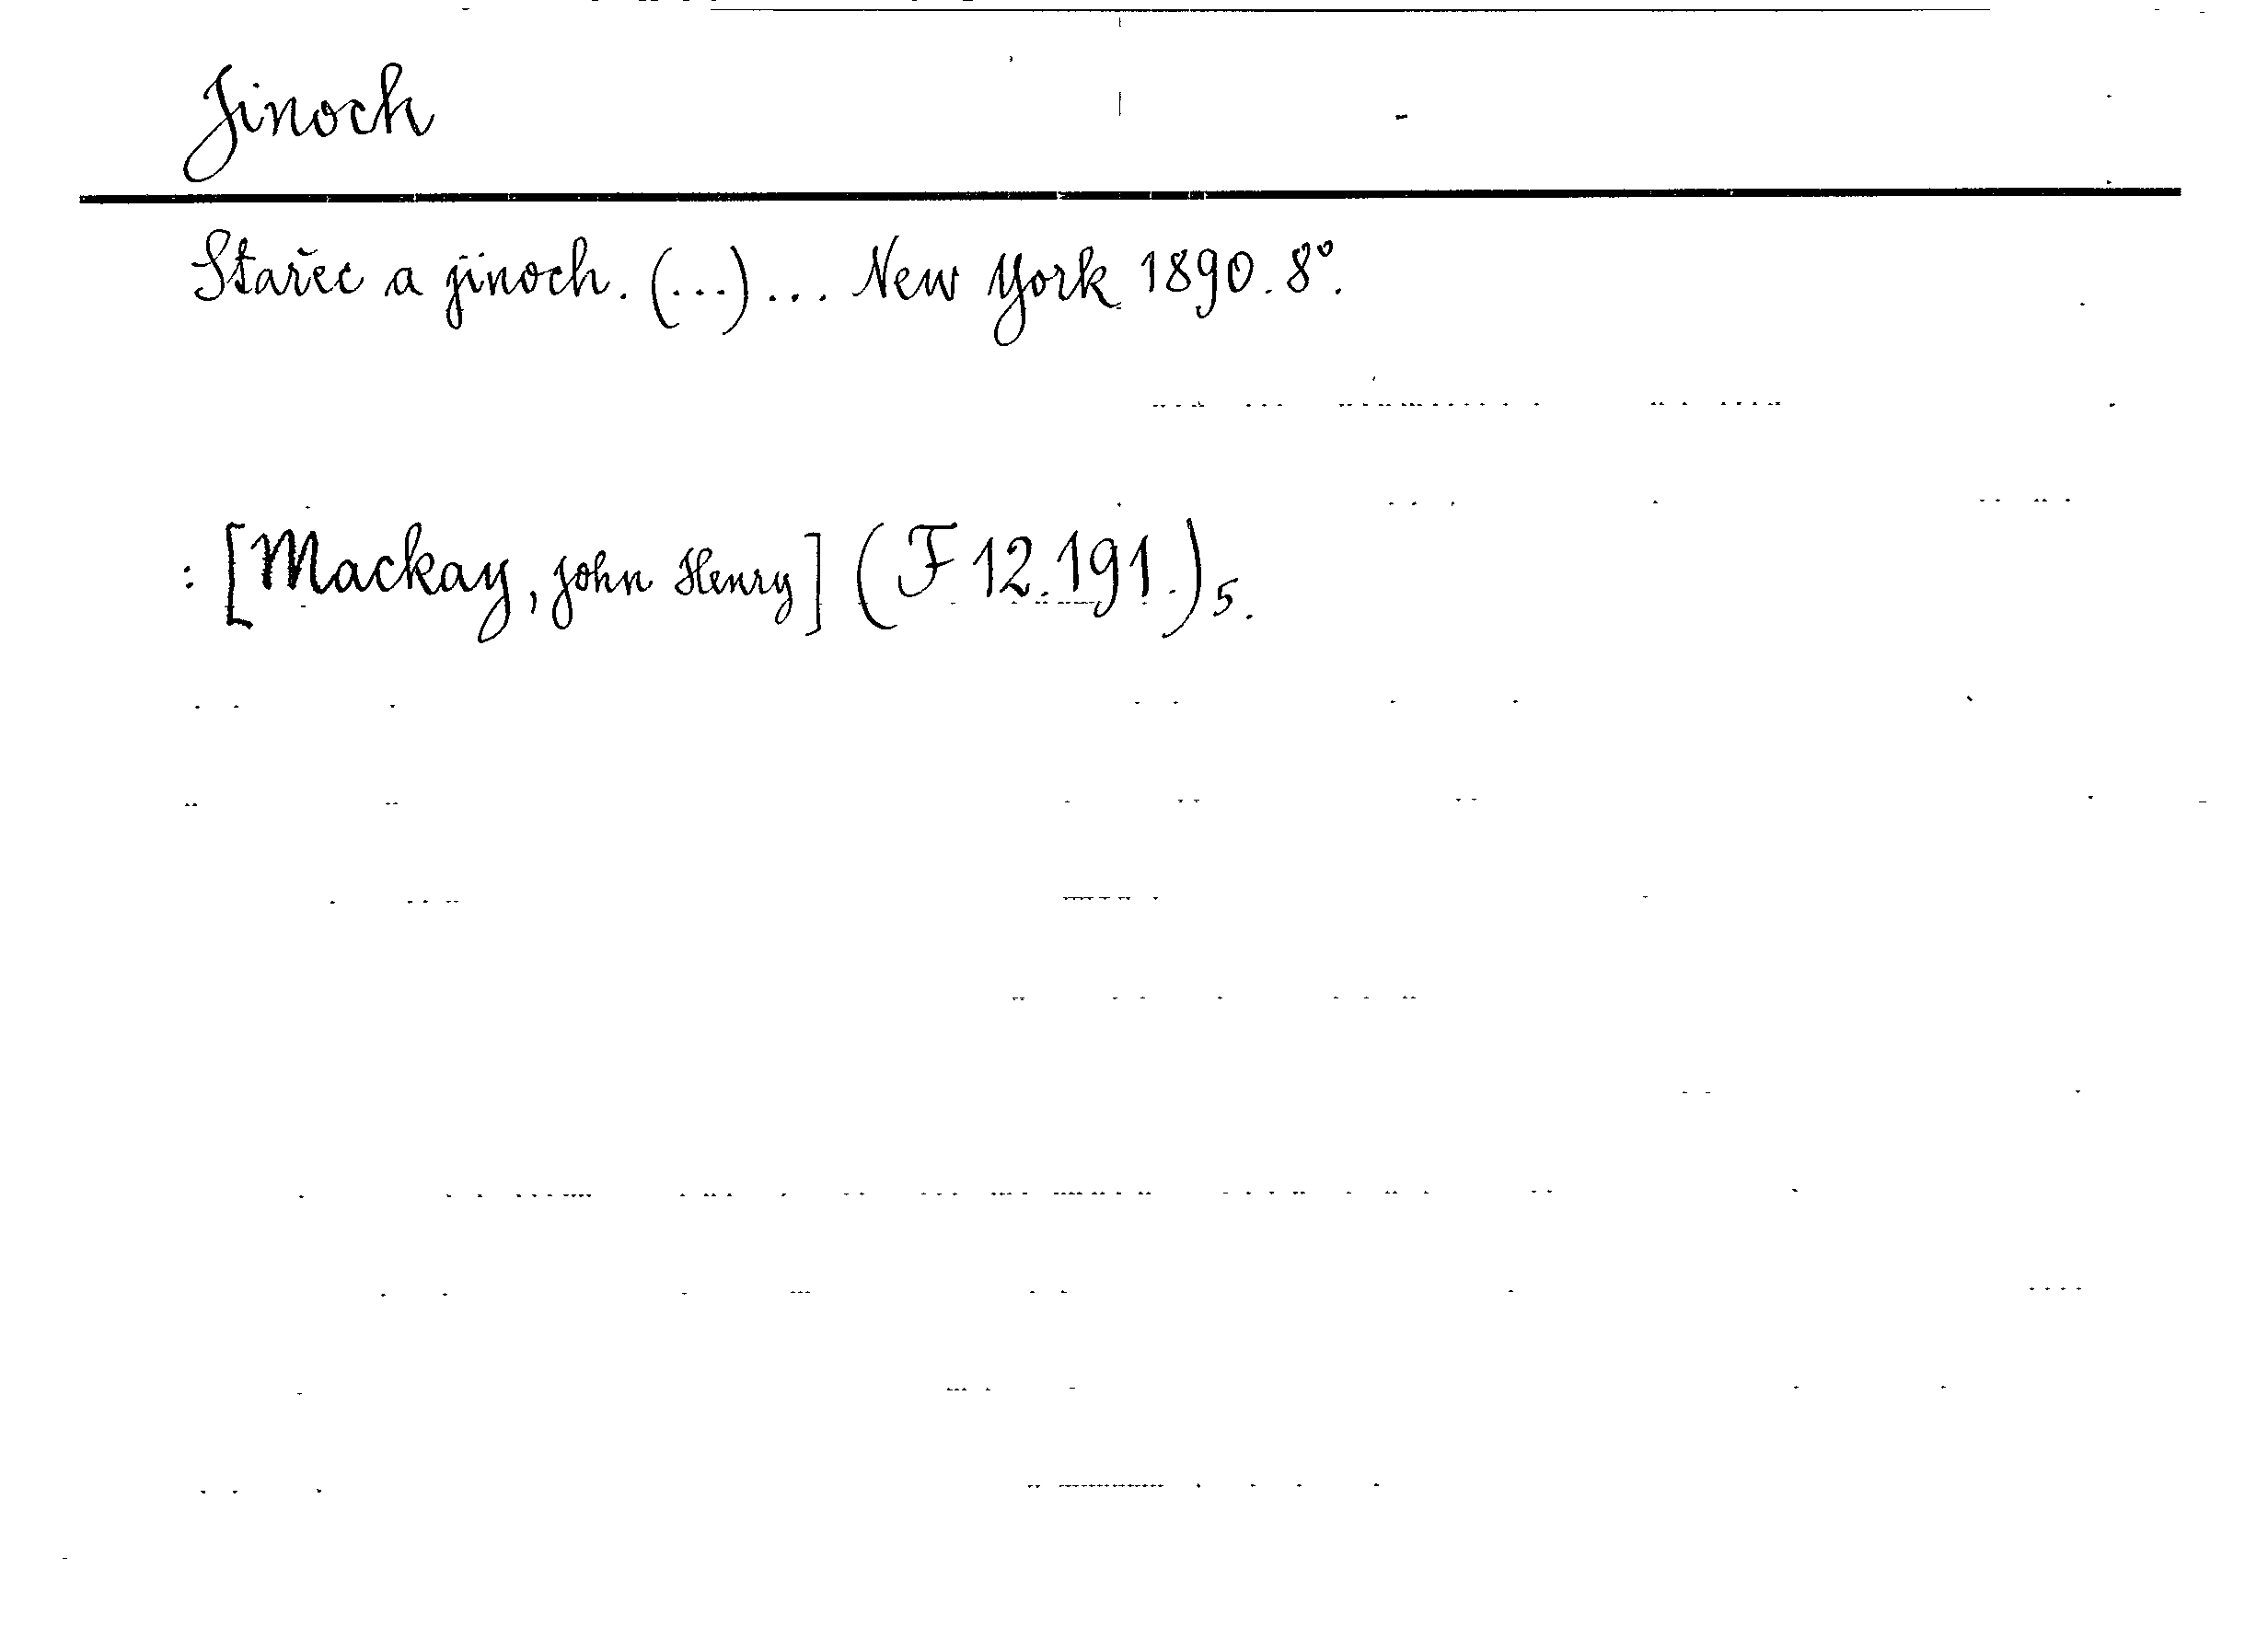 Jinoch
Stařec a jinoch. (...) ... New York 1890. 8°.
: [Mackay, John Henry] (F 12.191.) 5.